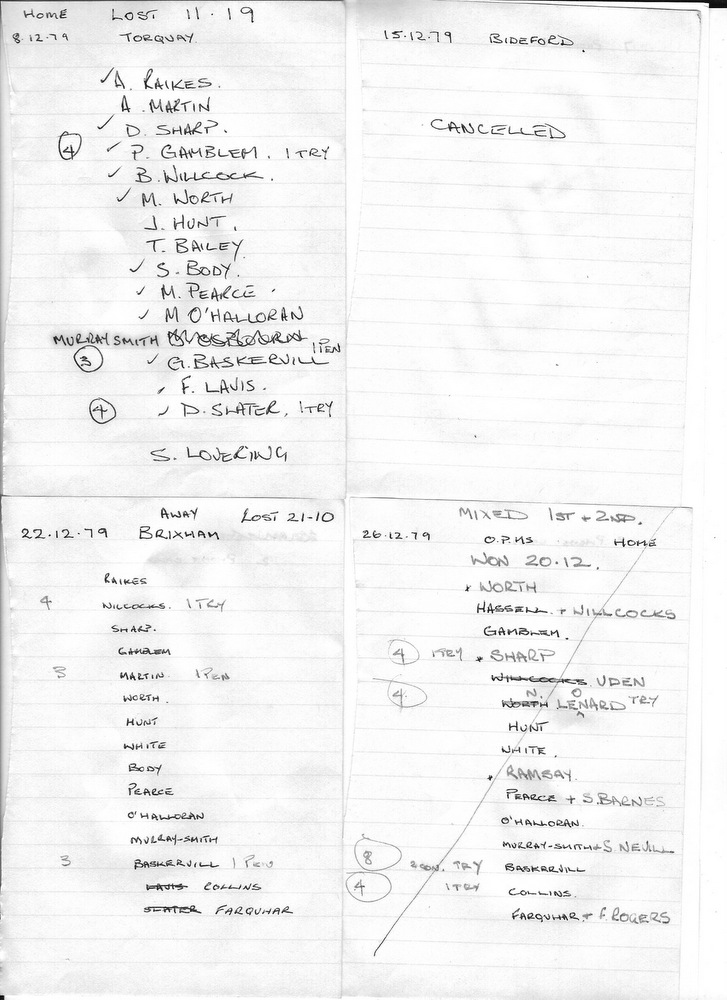 HOME LOST 11.19
8.12.79 TORQUAY
✓ A. RAIKES.
A. MARTIN
✓ D. SHARP.
4 ✓ P. GAMBLEM. 1TRY
✓ B. WILLCOCK.
✓ M. WORTH
J. HUNT.
T. BAILEY
✓ S. BODY.
✓ M. PEARCE.
✓ M O'HALLORAN
MURRAY SMITH
3 ✓ G. BASKERVILL 1PEN
✓ F. LAVIS.
4 ✓ D. SLATER, 1TRY
S. LOVERING
15.12.79 BIDEFORD.
CANCELLED
AWAY LOST 21-10
22.12.79 BRIXHAM
RAIKES
4 WILLCOCKS. 1TRY
SHARP.
GAMBLEM
3 MARTIN. 1PEN
WORTH.
HUNT
WHITE
BODY
PEARCE
O'HALLORAN
MURRAY-SMITH
3 BASKERVILL 1PEN
LAVIS COLLINS
SLATER FARQUHAR
MIXED 1ST + 2ND.
26.12.79 O.P.MS HOME
WON 20.12.
WORTH
HASSELL. + WILLCOCKS
GAMBLEM.
4 1TRY SHARP
WILLCOCKS UDEN
4 WORTH N. LENOARD TRY
HUNT
WHITE.
RAMSAY.
PEARCE + S. BARNES
O'HALLORAN.
MURRAY-SMITH + S NEVILL
8 2CON, TRY BASKERVILL
4 1TRY COLLINS.
FARQUHAR + F. ROGERS